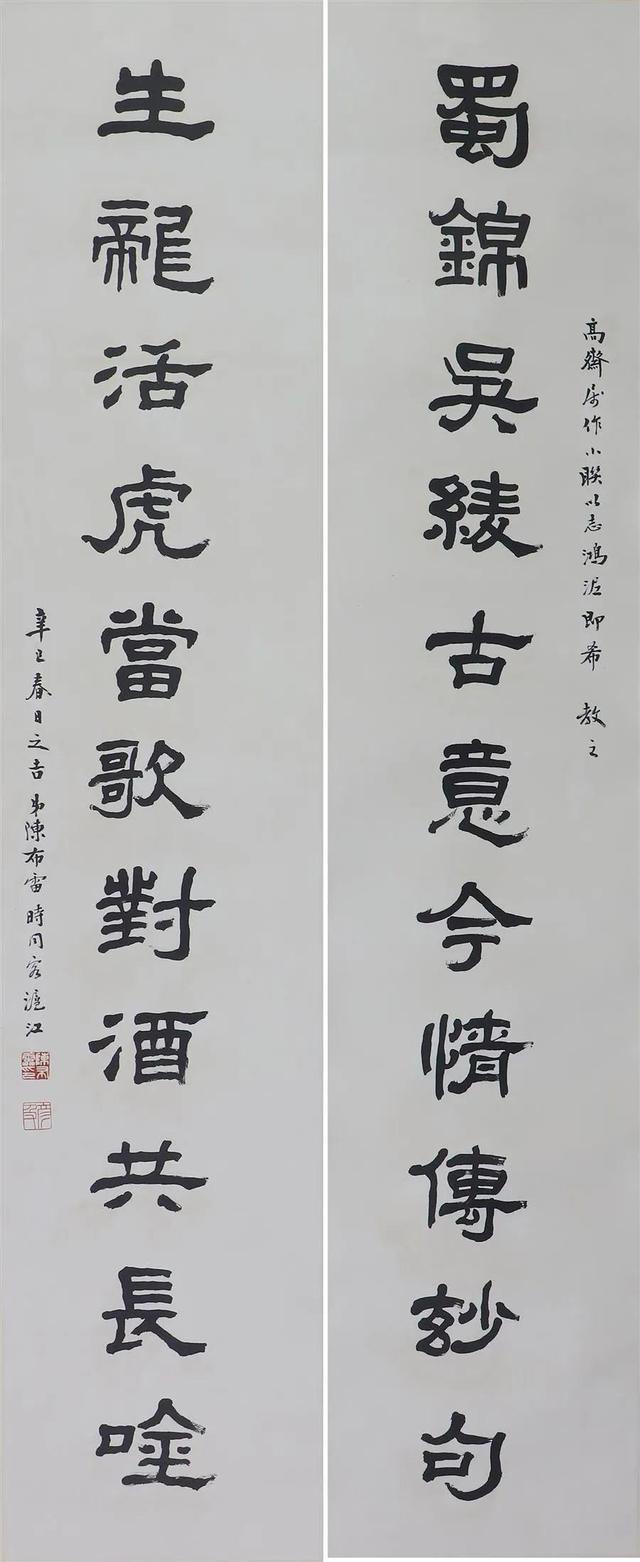 高齋属作小联以志鴻泥即希 教之
蜀錦吳綾古意今情傳玅句
生龍活虎當歌對酒共長唫
辛巳春日之吉 弟陳布雷時同客滬江